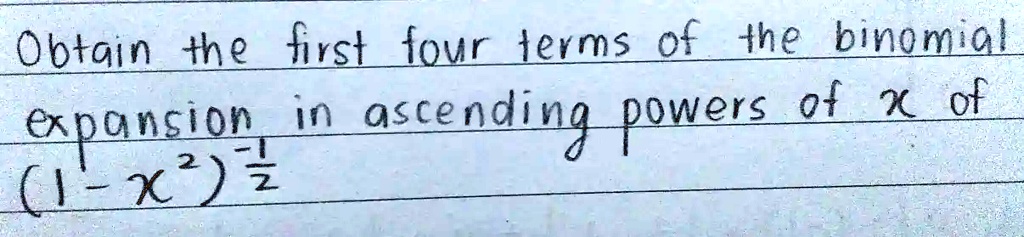 Obtain the first four terms of the binomial
expansion, in ascending powers of x of
(1 - x²)^(-1/2)